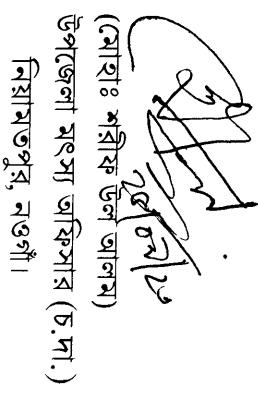 (মোহাঃ শরীফ উল আলম)
উপজেলা মৎস্য অফিসার (চ.দা.)
নিয়ামতপুর, নওগাঁ।